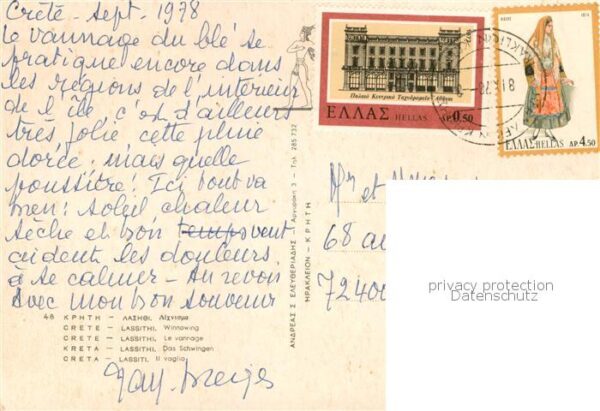 Crète - Sept. 1978
Le vannage du blé se
pratique encore dans
les régions de l'intérieur
de l'île, c'est d'ailleurs
très jolie cette pluie
dorée, mais quelle
poussière! Ici tout va
bien: Soleil, chaleur
sèche et bon temps vent
aident les douleurs
à se calmer - Au revoir
Avec mon bon souvenir
48 ΚΡΗΤΗ — ΛΑΣΗΘΙ. Λίχνισμα
CRETE — LASSITHI, Winnowing
CRETE — LASSITHI, Le vannage
KRETA — LASSITHI, Das Schwingen
CRETA — LASSITI. Il vaglio
ΑΝΔΡΕΑΣ Σ. ΕΛΕΥΘΕΡΙΑΔΗΣ - Αργυράκη 3 - Τηλ. 285 732
ΗΡΑΚΛΕΙΟΝ - ΚΡΗΤΗ
Παλαιό Κεντρικό Ταχυδρομείο Αθήναι
ΕΛΛΑΣ HELLAS ΔΡ. 0.50
ΕΛΛΑΣ HELLAS ΔΡ. 4.50
et
68
72400
privacy protection
Datenschutz